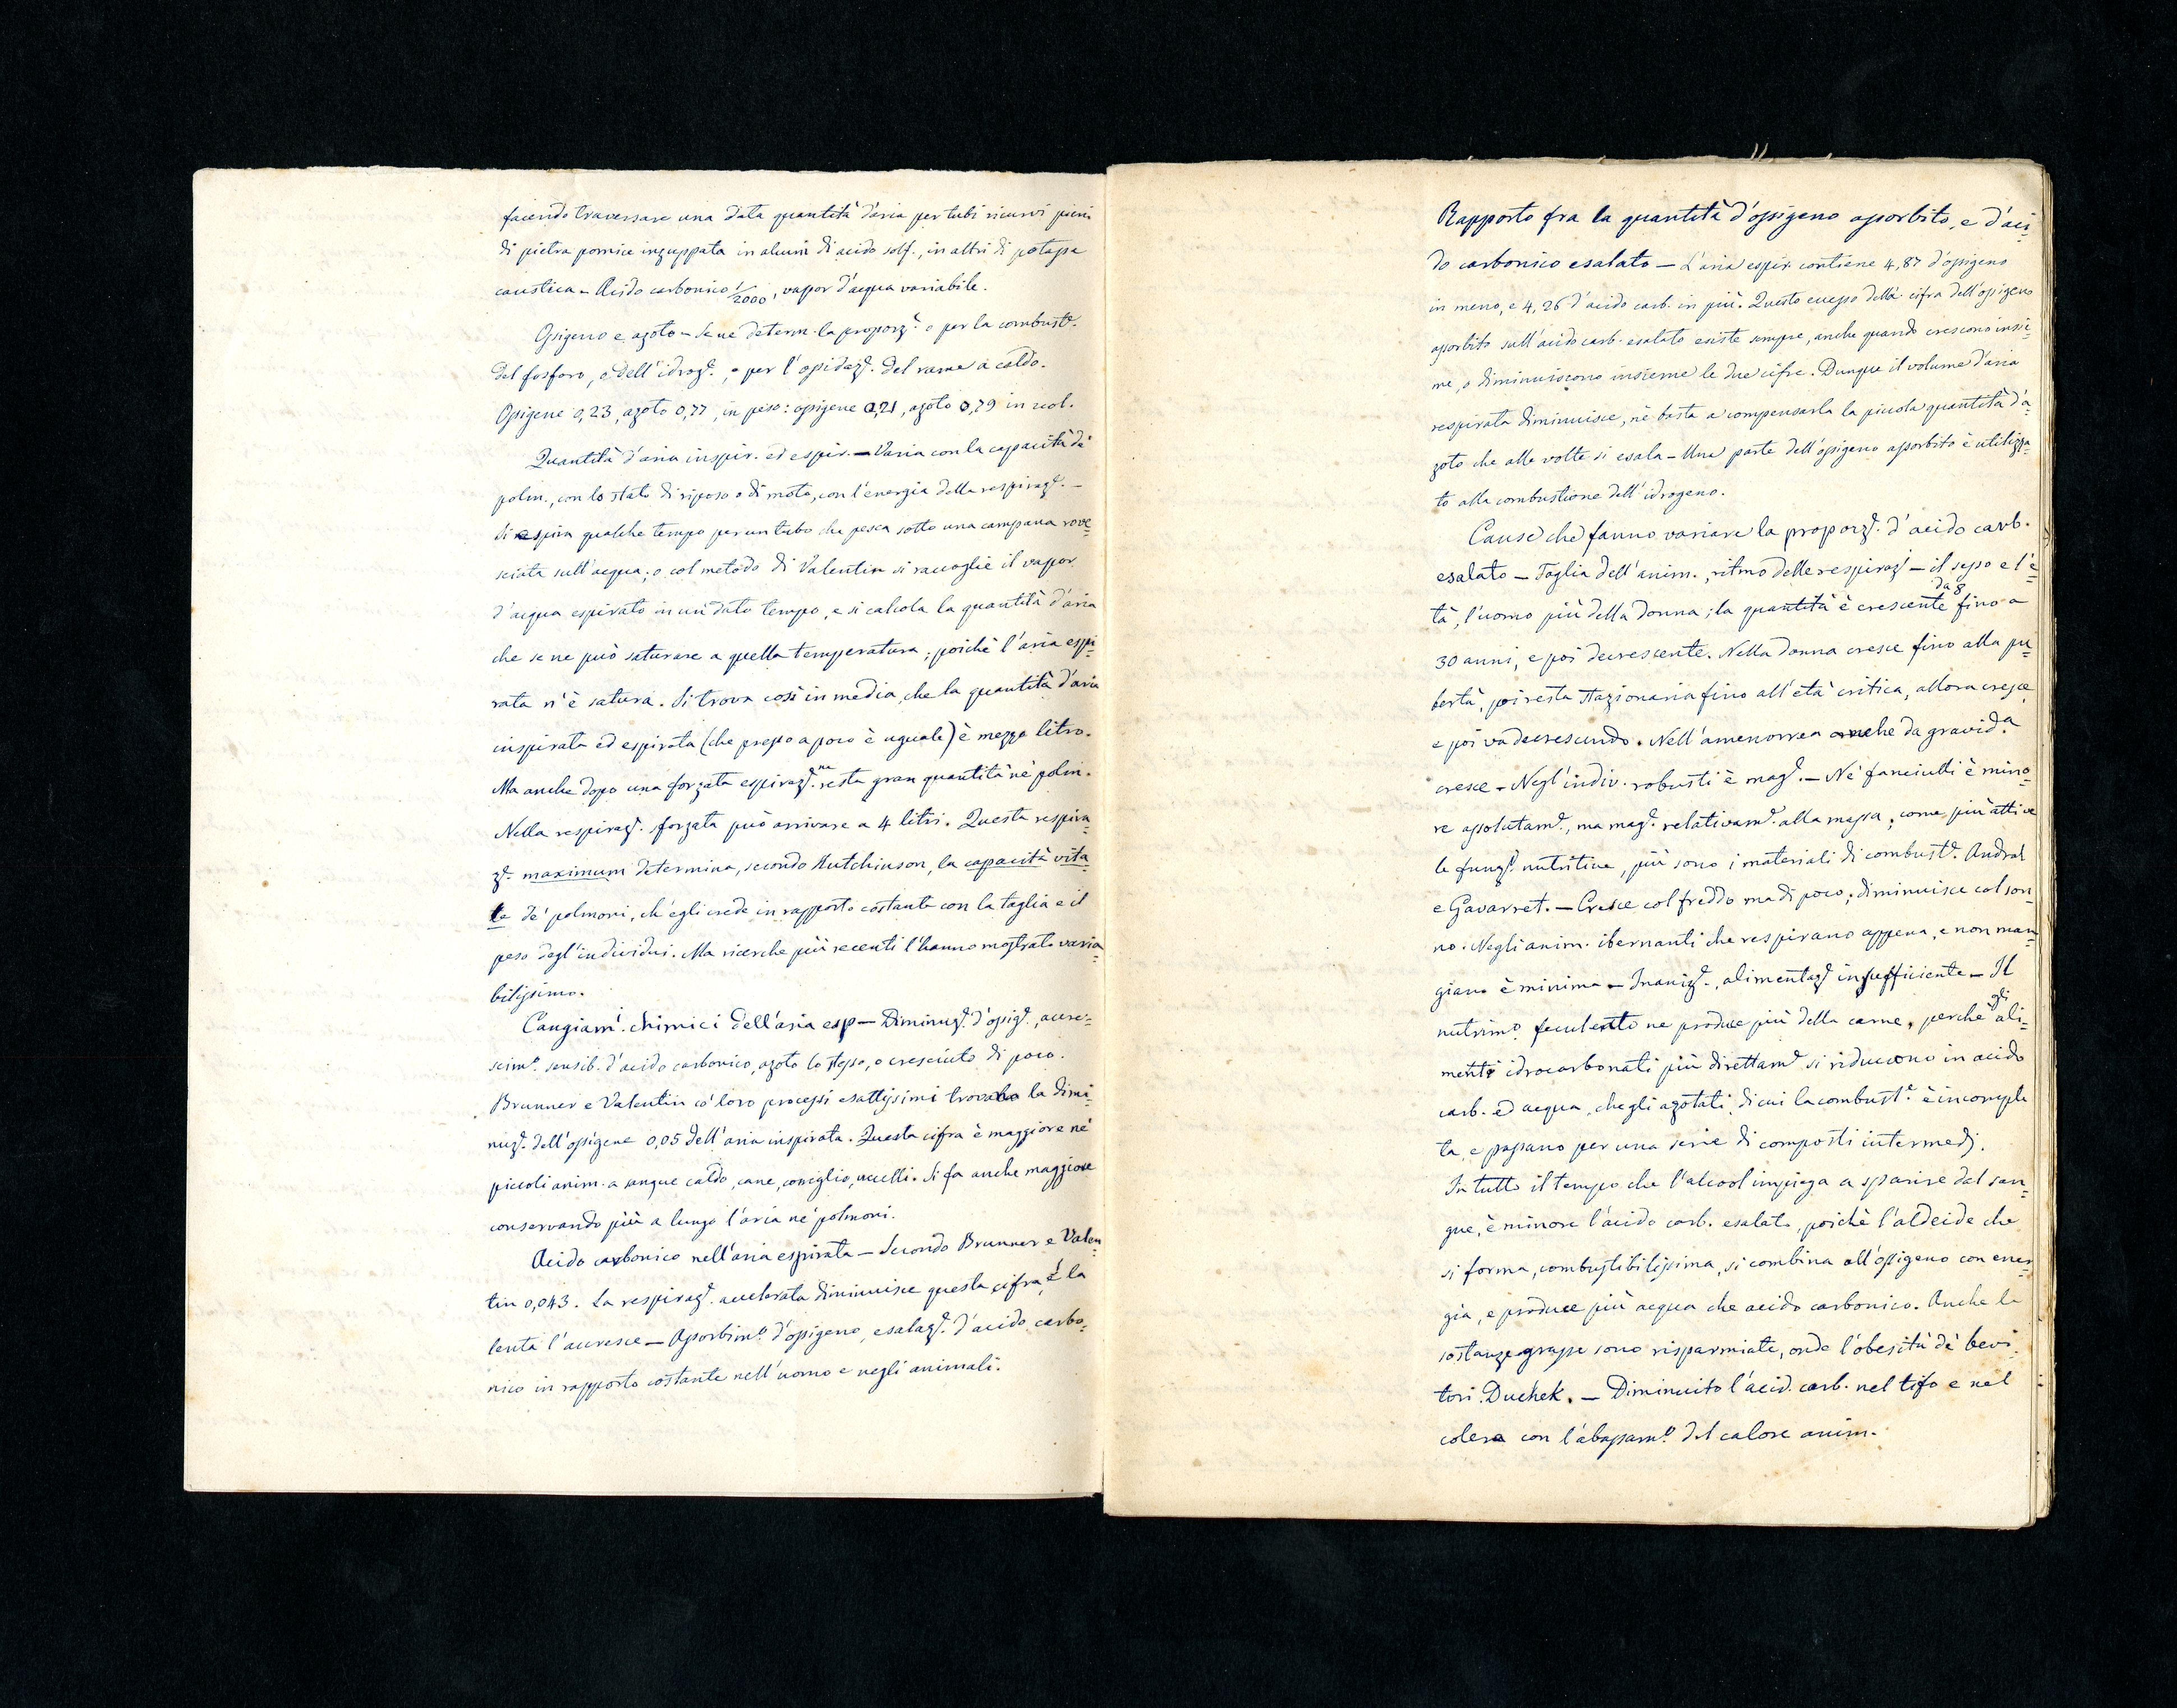 facendo traversare una data quantità d'aria per tubi ricurvi pieni
di pietra pomice inzuppata in alcuni di acido solf., in altri di potassa
caustica – Acido carbonico 1/2000, vapor d'acqua variabile.
Ossigeno e azoto – Se ne determ. la proporz.e o per la combust.e
del fosforo, e dell'idrog.o, o per l'ossidaz.e del rame a caldo.
Ossigene 0,23, azoto 0,77, in peso: ossigene 0,21, azoto 0,79 in vol.
Quantità d'aria inspir. ed espir. – Varia con la capacità de'
polm., con lo stato di riposo o di moto, con l'energia della respiraz.e –
Si espira qualche tempo per un tubo che pesca sotto una campana rove=
sciata sull'acqua; o col metodo di Valentin si raccoglie il vapor
d'acqua espirato in un dato tempo, e si calcola la quantità d'aria
che se ne può saturare a quella temperatura; poichè l'aria espi=
rata n'è satura. Si trova così in media, che la quantità d'aria
inspirata ed espirata (che presso a poco è uguale) è mezzo litro.
Ma anche dopo una forzata espiraz.e ne resta gran quantità ne' polm.
Nella respiraz.e forzata può arrivare a 4 litri. Questa respira=
z.e maximum determina, secondo Hutchinson, la capacità vita=
le de' polmoni, ch'egli crede in rapporto costante con la taglia e il
peso degl'individui. Ma ricerche più recenti l'hanno mostrato varia=
bilissimo.
Cangiam.i chimici dell'aria esp – Diminuz.e d'ossig.e, accre=
scim.o sensib. d'acido carbonico, azoto lo stesso, o cresciuto di poco.
Brunner e Valentin co' loro processi esattissimi trovano la dimi=
nuz.e dell'ossigene 0,05 dell'aria inspirata. Questa cifra è maggiore ne'
piccoli anim. a sangue caldo, cane, coniglio, uccelli. Si fa anche maggiore
conservando più a lungo l'aria ne' polmoni.
Acido carbonico nell'aria espirata – Secondo Brunner e Valen=
tin 0,043. La respiraz.e accelerata diminuisce questa cifra, e la
lenta l'accresce – Assorbim.o d'ossigeno, esalaz.e d'acido carbo=
nico in rapporto costante nell'uomo e negli animali.
Rapporto fra la quantità d'ossigeno assorbito, e d'aci=
do carbonico esalato – L'aria espir. contiene 4,87 d'ossigeno
in meno, e 4,26 d'acido carb. in più. Questo eccesso della cifra dell'ossigeno
assorbito sull'acido carb. esalato esiste sempre, anche quando crescono insie=
me, o diminuiscono insieme le due cifre. Dunque il volume d'aria
respirata diminuisce, nè basta a compensarla la piccola quantità d'a=
zoto che alle volte si esala – Una parte dell'ossigeno assorbito è utilizza=
to alla combustione dell'idrogeno.
Cause che fanno variare la proporz.e d'acido carb.
esalato – Taglia dell'anim., ritmo delle respiraz.i – il sesso e l'e=
tà, l'uomo più della donna; la quantità è crescente da 8 fino a
30 anni, e poi decrescente. Nella donna cresce fino alla pu=
bertà, poi resta stazionaria fino all'età critica, allora cresce,
e poi va decrescendo. Nell'amenorrea anche da gravid.a
cresce – Negl'indiv. robusti è mag.e – Ne' fanciulli è mino=
re assolutam.e, ma mag.e relativam.e alla massa; come più attive
le funz.i nutritive, più sono i materiali di combust.e. Andral
e Gavarret. – Cresce col freddo ma di poco; diminuisce col son=
no. Negli anim. ibernanti che respirano appena, e non man=
giano è minima – Inaniz.e, alimentaz.e insufficiente – Il
nutrim.o feculento ne produce più della carne, perchè gli ali=
menti idrocarbonati più direttam.e si riducono in acido
carb. ed acqua, che gli azotati, di cui la combust.e è incomple
ta, e passano per una serie di composti intermedj.
In tutto il tempo che l'alcool impiega a sparire dal san=
gue, è minore l'acido carb. esalato, poichè l'aldeide che
si forma, combustibilissima, si combina all'ossigeno con ener=
gia, e produce più acqua che acido carbonico. Anche le
sostanze grasse sono risparmiate, onde l'obesità de' bevi=
tori. Duchek. – Diminuito l'acid. carb. nel tifo e nel
colera con l'abassam.o del calore anim.